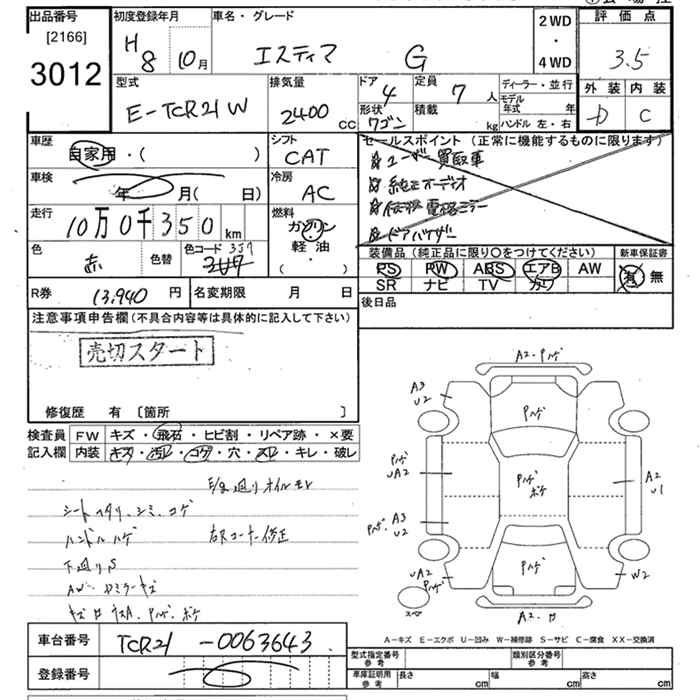 出品番号
[2166]
3012
初度登録年月
H 8 10月
車名・グレード
エスティマ G
2WD
・
4WD
評価点
3.5
外装 内装
D C
型式
E-TCR21W
排気量
2400 cc
ドア 4
形状 ワゴン
定員 7 人
積載 kg
ディーラー・並行
モデル年式 年
ハンドル 左・右
車歴
自家用・( )
シフト
CAT
セールスポイント (正常に機能するものに限ります)
☆ユーザー買取車
☆純正オーディオ
☆ドアバイザー
車検
年 月( 日)
冷房
AC
走行
10万0千350km
燃料
ガソリン
軽油
・( )
色
赤
色替
色コード 3J7
装備品 (純正品に限り○をつけてください)
PS PW ABS エアB AW
SR ナビ TV カワ
新車保証書
有 無
R券 13,940円
名変期限 月 日
後日品
注意事項申告欄 (不具合内容等は具体的に記入して下さい)
売切スタート
修復歴 有 [箇所 ]
検査員記入欄
FW キズ・飛石・ヒビ割・リペア跡・×要
内装 キズ・汚れ・コゲ・穴・スレ・キレ・破レ
E/g廻りオイルモレ
シート スタリ、シミ、コゲ
ハンドル ハゲ
右Rコーナー修正
下廻りS
AW
A2・ハゲ
A3
U2
ハゲ
ハゲ
UA2
ハゲ
ボケ
A2
U1
ハゲ A3
U2
ハゲ
UA2
ハゲ
W2
スペア
A2
A-キズ E-エクボ U-凹み W-補修跡 S-サビ C-腐食 XX-交換済
車台番号
TCR21-0063643
登録番号
型式指定番号 参考
類別区分番号 参考
車庫証明用 参考
長さ cm
幅 cm
高さ cm